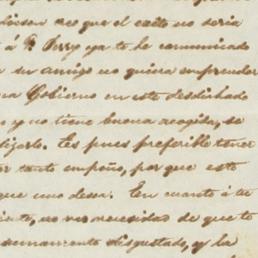 docson creo que el exito no seria
á P. Perry ya te he comunicado
su amigo no quiera emprender
Gobierno en este desdichado
y no tiene buena acogida, se
Es pues preferible tener
tanto empeño, por que este
que uno desea. En cuanto á tu
no veo necesidad de que te
sumamente disgustado, y la